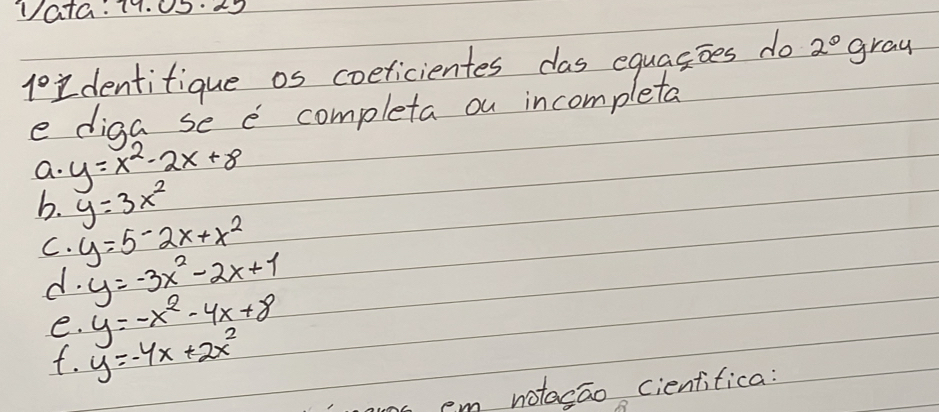 Data: 14.05.25
1º Identifique os coeficientes das equações do 2º grau
e diga se é completa ou incompleta
a. y = x² - 2x + 8
b. y = 3x²
c. y = 5 - 2x + x²
d. y = -3x² - 2x + 1
e. y = -x² - 4x + 8
f. y = -4x + 2x²
em notação cientifica: